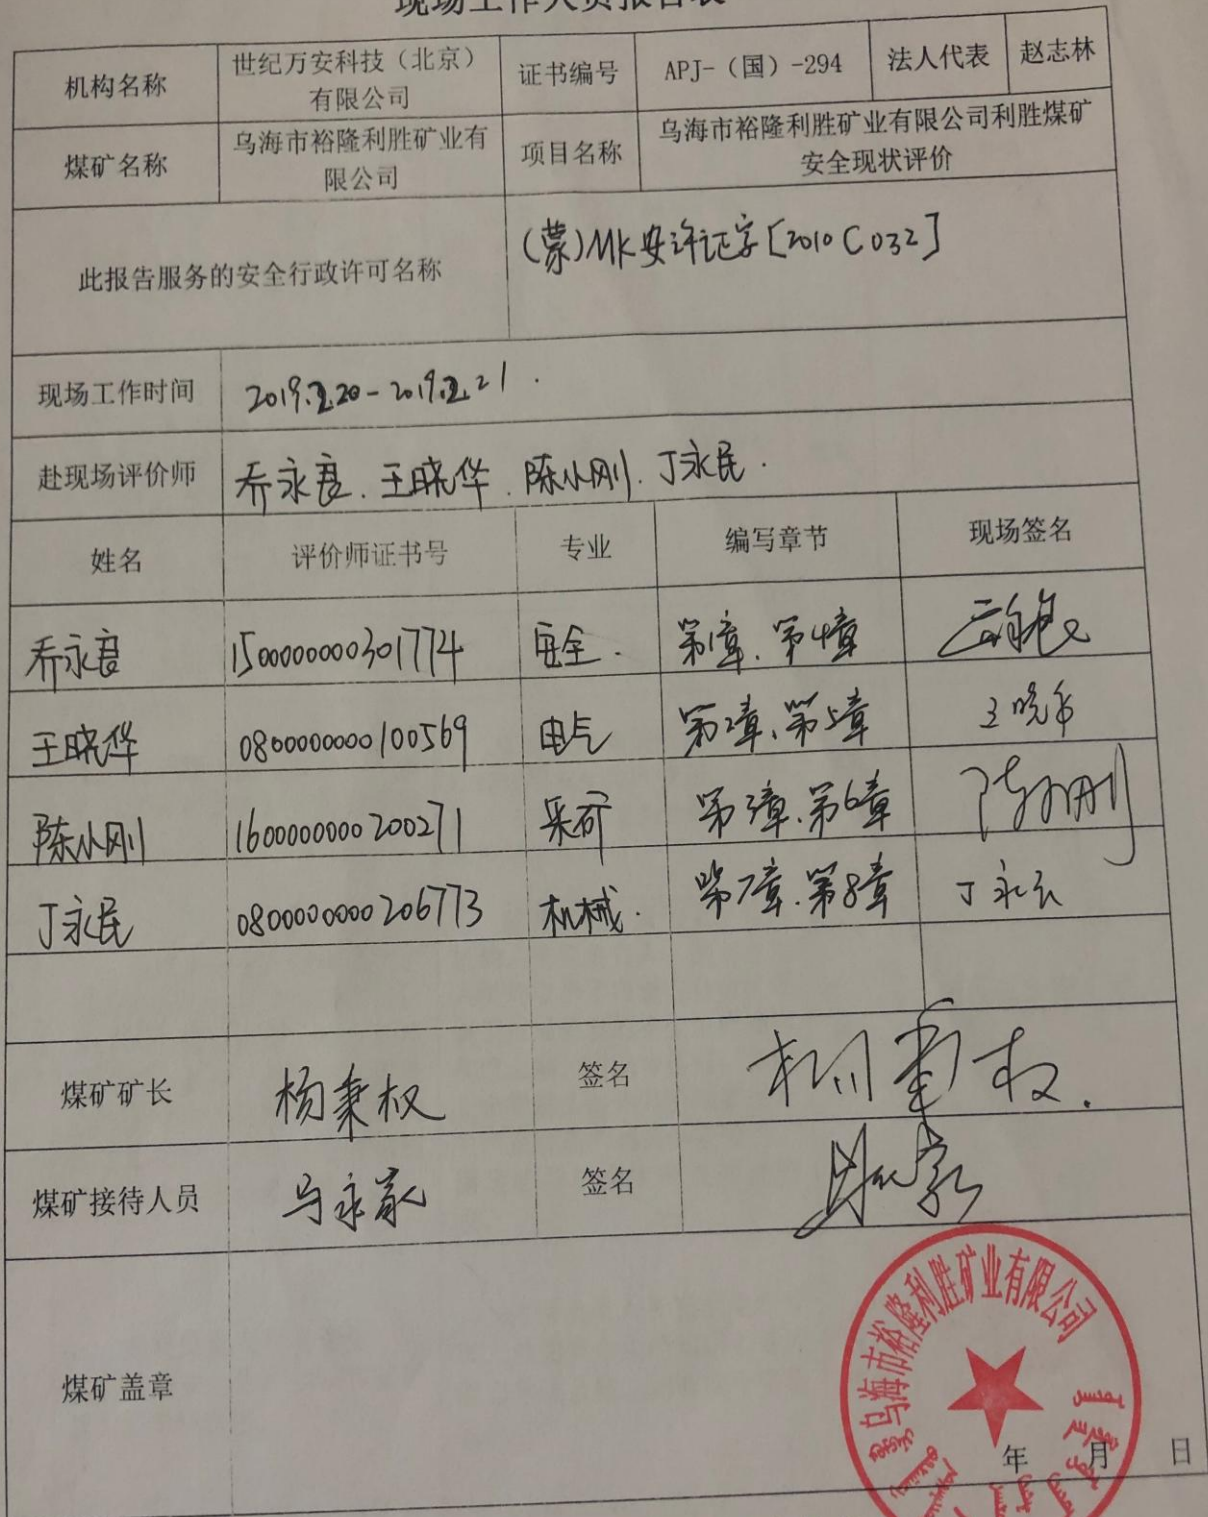 现场工作人员报告表
机构名称 世纪万安科技（北京）有限公司 证书编号 APJ-（国）-294 法人代表 赵志林
煤矿名称 乌海市裕隆利胜矿业有限公司 项目名称 乌海市裕隆利胜矿业有限公司利胜煤矿安全现状评价
此报告服务的安全行政许可名称 (蒙)MK安许证字[2010C032]
现场工作时间 2019.2.20-2019.2.21.
赴现场评价师 乔永良、王晓华、陈小刚、丁永民.
姓名 评价师证书号 专业 编写章节 现场签名
乔永良 1500000000301774 安全. 第1章、第4章
王晓华 0800000000100569 电气 第2章、第5章 王晓华
陈小刚 1600000000200271 采矿 第3章、第6章 陈小刚
丁永民 0800000000206773 机械. 第7章、第8章 丁永民
煤矿矿长 杨秉权 签名
煤矿接待人员 马永家 签名
煤矿盖章
乌海市裕隆利胜矿业有限公司
年 月 日